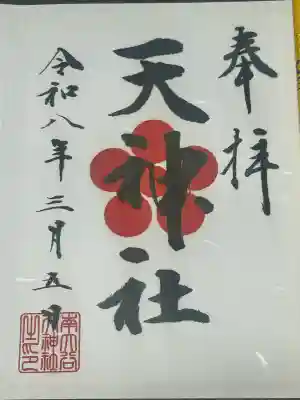 奉拝
天神社
令和八年三月五日
南大谷
天神社
之印